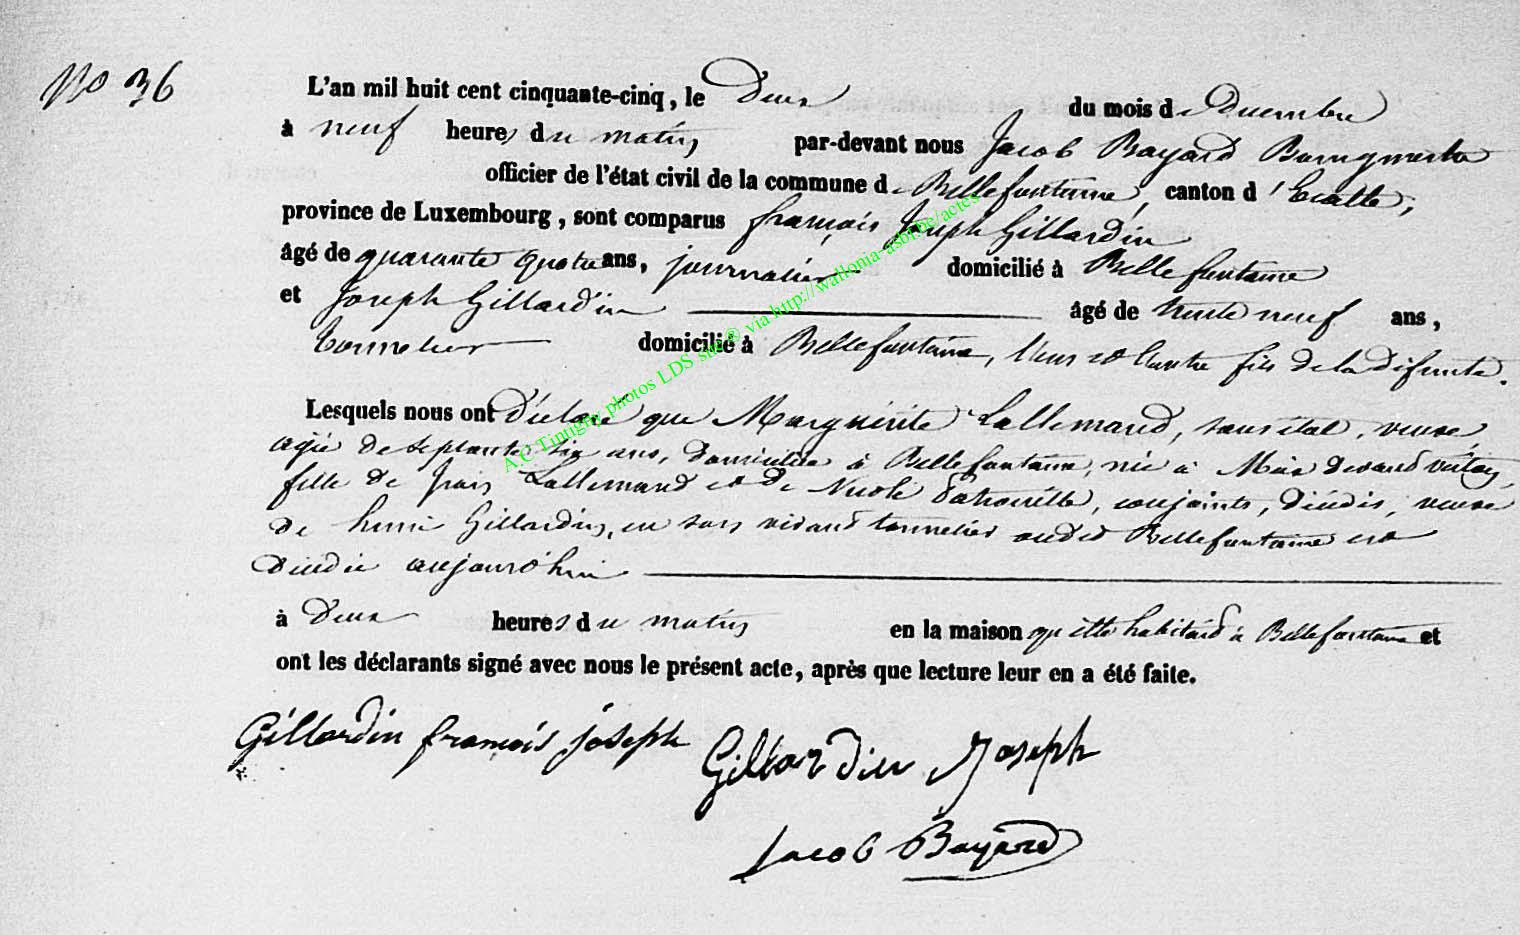 No 36
L'an mil huit cent cinquante-cinq, le Deux du mois de Décembre
à neuf heures du matin par-devant nous Jacob Bayard Bourgmestre
officier de l'état civil de la commune de Bellefontaine, canton d'Etalle,
province de Luxembourg, sont comparus françois Joseph Gillardin
âgé de quarante quatre ans, journalier domicilié à Bellefontaine
et Joseph Gillardin âgé de trente neuf ans,
tonnelier domicilié à Bellefontaine, l'un et l'autre fils de la défunte.
Lesquels nous ont déclaré que Marguérite Lallemand, sans état, veuve,
agée de septante six ans, domiciliée à Bellefontaine, née à Meix devant virton,
fille de Lallemand et de Nicole, conjoints, décédés, veuve
de henri Gillardin, en son vivant tonnelier audit Bellefontaine est
décédée aujourd'hui
à Deux heures du matin en la maison qu'elle habitait à Bellefontaine et
ont les déclarants signé avec nous le présent acte, après que lecture leur en a été faite.
Gillardin françois joseph Gillardin Joseph
Jacob Bayard
A C Tintigny photos LDS site® via http://wallonia-asbl.be/actes